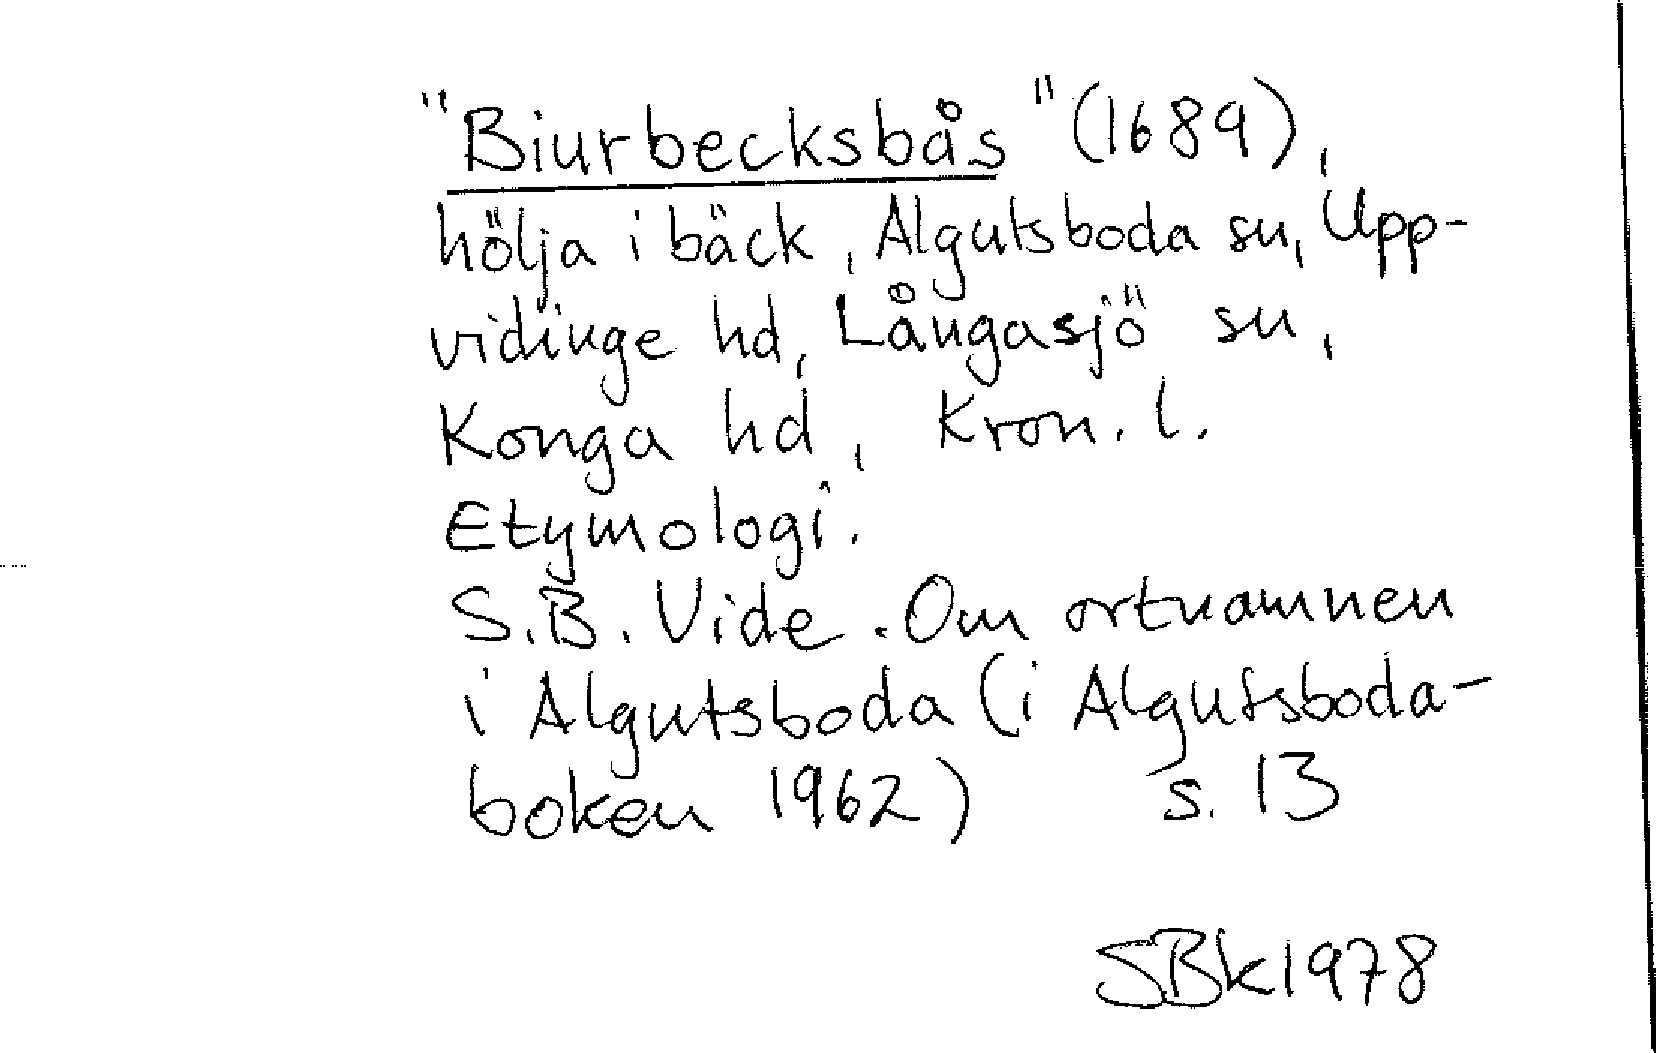 "Biurbecksbås" (1689),
hölja i bäck, Algutsboda sn, Upp-
vidinge hd, Långasjö sn,
Konga hd, Kron. l.
Etymologi.
S.B. Vide. Om ortnamnen
i Algutsboda (i Algutsboda-
boken 1962) s. 13
SBk1978